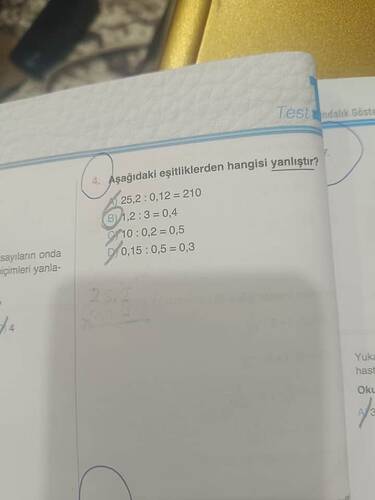 Test
ndalık Göste
4. Aşağıdaki eşitliklerden hangisi yanlıştır?
A) 25,2 : 0,12 = 210
B) 1,2 : 3 = 0,4
C) 10 : 0,2 = 0,5
D) 0,15 : 0,5 = 0,3
sayıların onda
içimleri yanla-
4
7.
Yuka
hast
Oku
A) 3